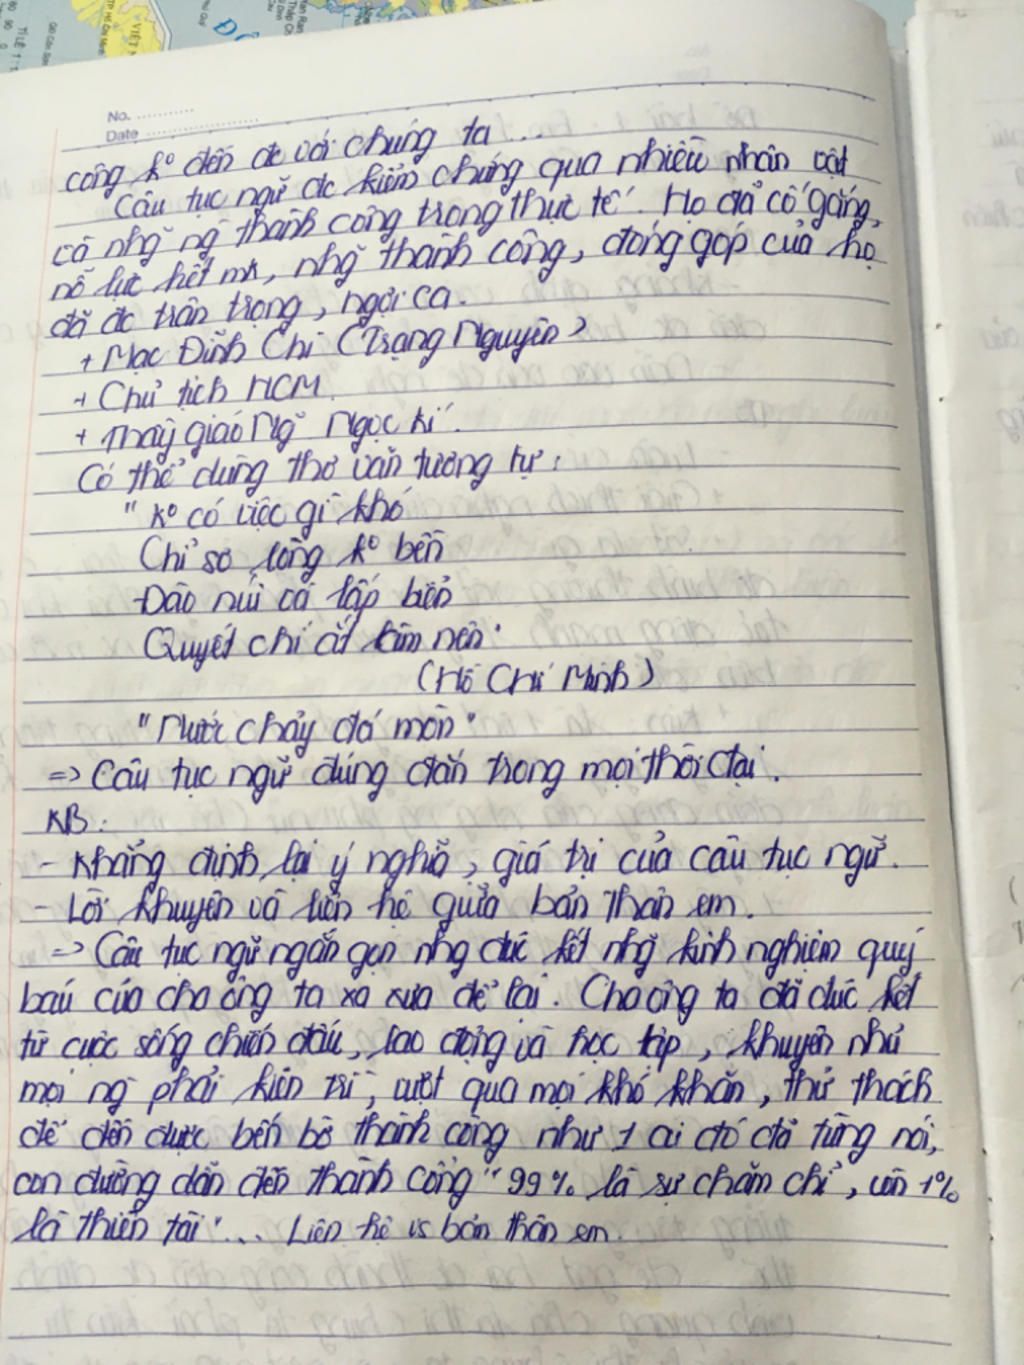 VIỆT N
TP Hồ Chí Minh
Phú Quý
Đ
Phan Ran
Tháp Ch
TỈ LỆ 1:
No.
Date
công kº đến đc với chúng ta ...
Câu tục ngữ đc kiểm chứng qua nhiều nhân vật
cả nhg~ ng` thành công trong thực tế. Họ đã cố gắng,
nỗ lực hết mk, nhg~ thành công, đóng góp của họ
đã đc trân trọng, ngợi ca.
+ Mạc Đĩnh Chi (Trạng Nguyên)
+ Chủ tịch HCM.
+ Thầy giáo Ng~ Ngọc Kí.
Có thể dùng thơ văn tương tự:
"Kº có việc gì khó
Chỉ sợ lòng kº bền
Đào núi và lấp biển
Quyết chí ắt làm nên"
(Hồ Chí Minh)
"Nước chảy đá mòn"
=> Câu tục ngữ đúng đắn trong mọi thời đại.
KB:
- Khẳng định lại ý nghĩa, giá trị của câu tục ngữ.
- Lời khuyên và liên hệ giữa bản thân em.
=> Câu tục ngữ ngắn gọn nhg đúc kết nhg~ kinh nghiệm quý
báu của cha ông ta xa xưa để lại. Cha ông ta đã đúc kết
từ cuộc sống chiến đấu, lao động và học tập, khuyên nhủ
mọi ng` phải kiên trì, vượt qua mọi khó khăn, thử thách
để đến được bến bờ thành công như 1 ai đó đã từng nói,
con đường dẫn đến thành công "99% là sự chăm chỉ, còn 1%
là thiên tài"... Liên hệ vs bản thân em.